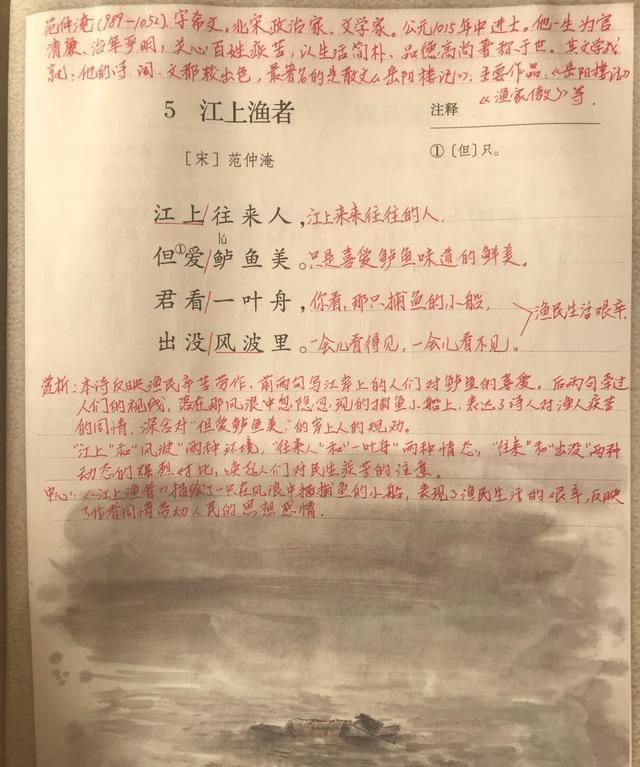 范仲淹(989-1052).字希文.北宋政治家、文学家。公元1015年中进士。他一生为官
清廉、治军严明,关心百姓疾苦,以生活简朴、品德高尚著称于世。其文学成
就:他的诗、词、文都较出色,最著名的是散文《岳阳楼记》;主要作品:《岳阳楼记》
《渔家傲》等.
5 江上渔者
注释
[宋] 范仲淹
①〔但〕只。
江上/往来人,江上来来往往的人.
lú
但①爱/鲈鱼美。只是喜爱鲈鱼味道的鲜美。
君看/一叶舟,你看,那只捕鱼的小船,
渔民生活艰辛.
出没/风波里。一会儿看得见,一会儿看不见。
赏析:本诗反映渔民辛苦劳作,前两句写江岸上的人们对鲈鱼的喜爱。后两句牵过
人们的视线,落在那风浪中忽隐忽现的捕鱼小船上.表达了诗人对渔人疾苦
的同情,深含对“但爱鲈鱼美”的岸上人的规劝。
“江上”和“风波”两种环境,“往来人”和“一叶舟”两种情态,“往来”和“出没”两种
动态的强烈对比,唤起人们对民生疾苦的注意。
中心:《江上渔者》描绘了一只在风浪中捕鱼的小船,表现了渔民生活的艰辛,反映
了作者同情劳动人民的思想感情.